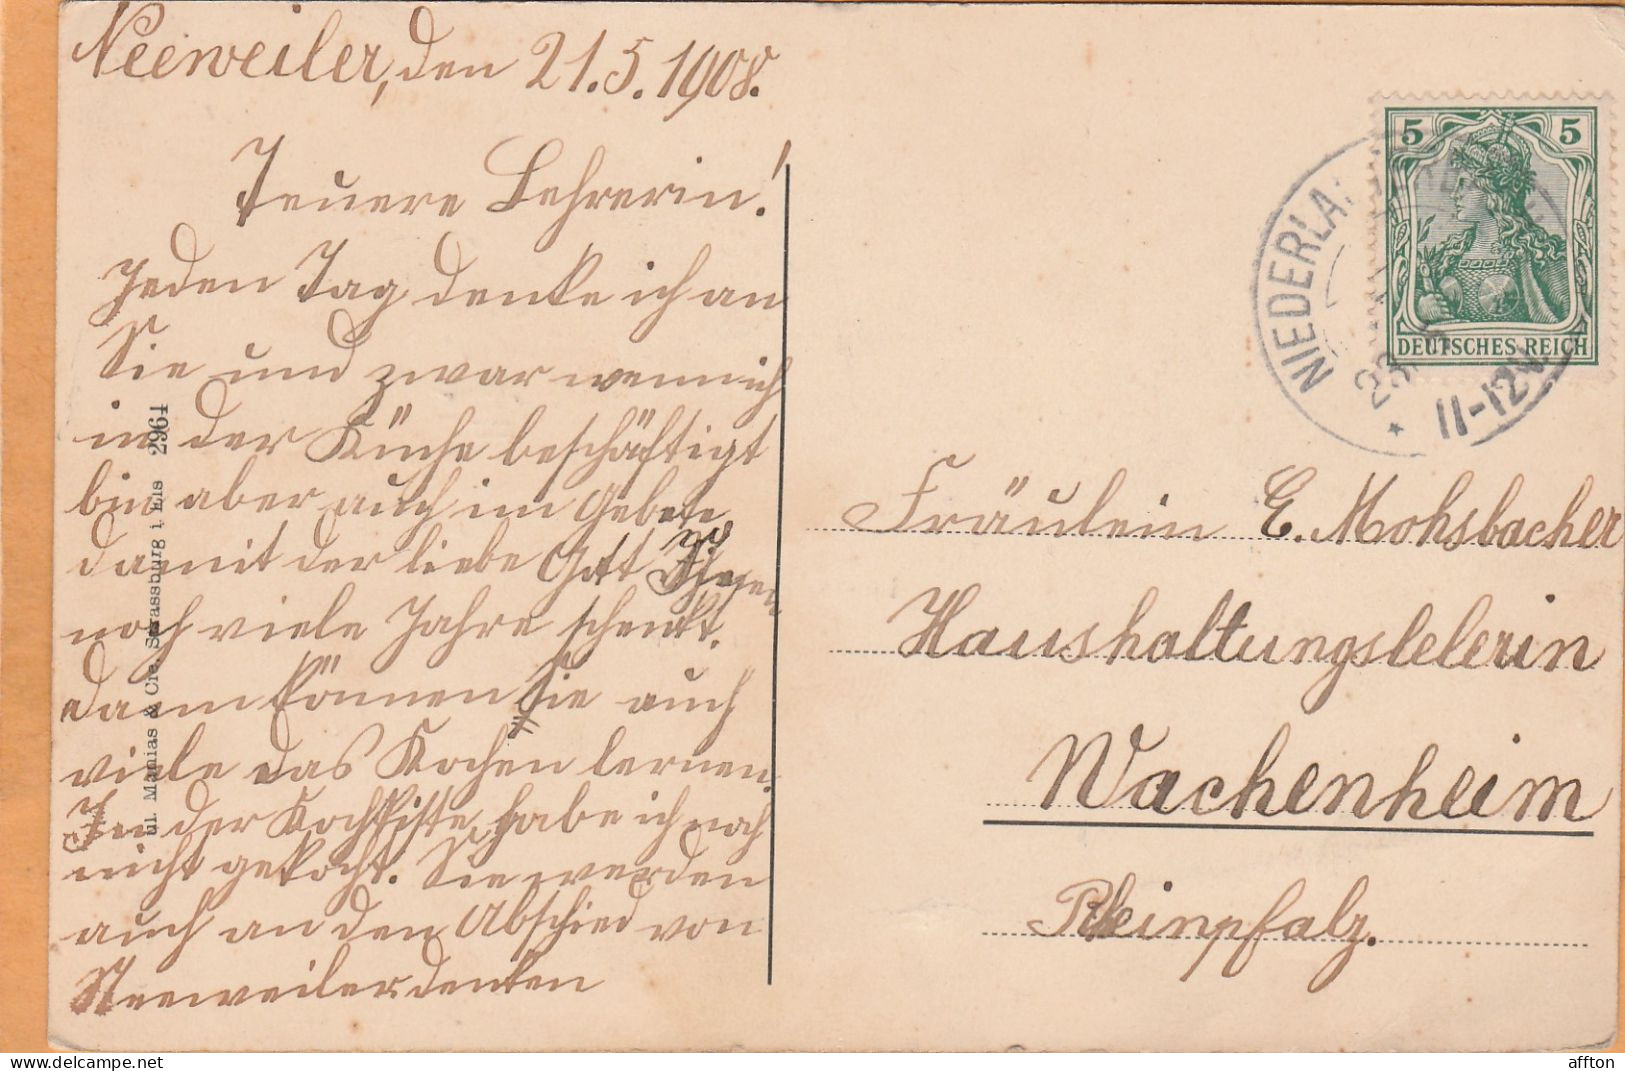 Neeweiler, den 21.5.1908.
Teuere Lehrerin!
Jeden Tag denke ich an
Sie und zwar wenn ich
in der Küche beschäftigt
bin aber auch im Gebete
damit der liebe Gott Ihnen
noch viele Jahre schenkt.
dann können Sie auch
viele das Kochen lernen.
In der Kochkiste habe ich noch
nicht gekocht. Sie werden
auch an den Abschied von
Neeweiler denken
ul. Manias & Cie. Strassburg i. Els 2961
5 5
DEUTSCHES REICH
NIEDERLA
23
11-12V.
Fräulein E. Mohsbacher
Haushaltungslelerin
Wachenheim
Rheinpfalz.
affton